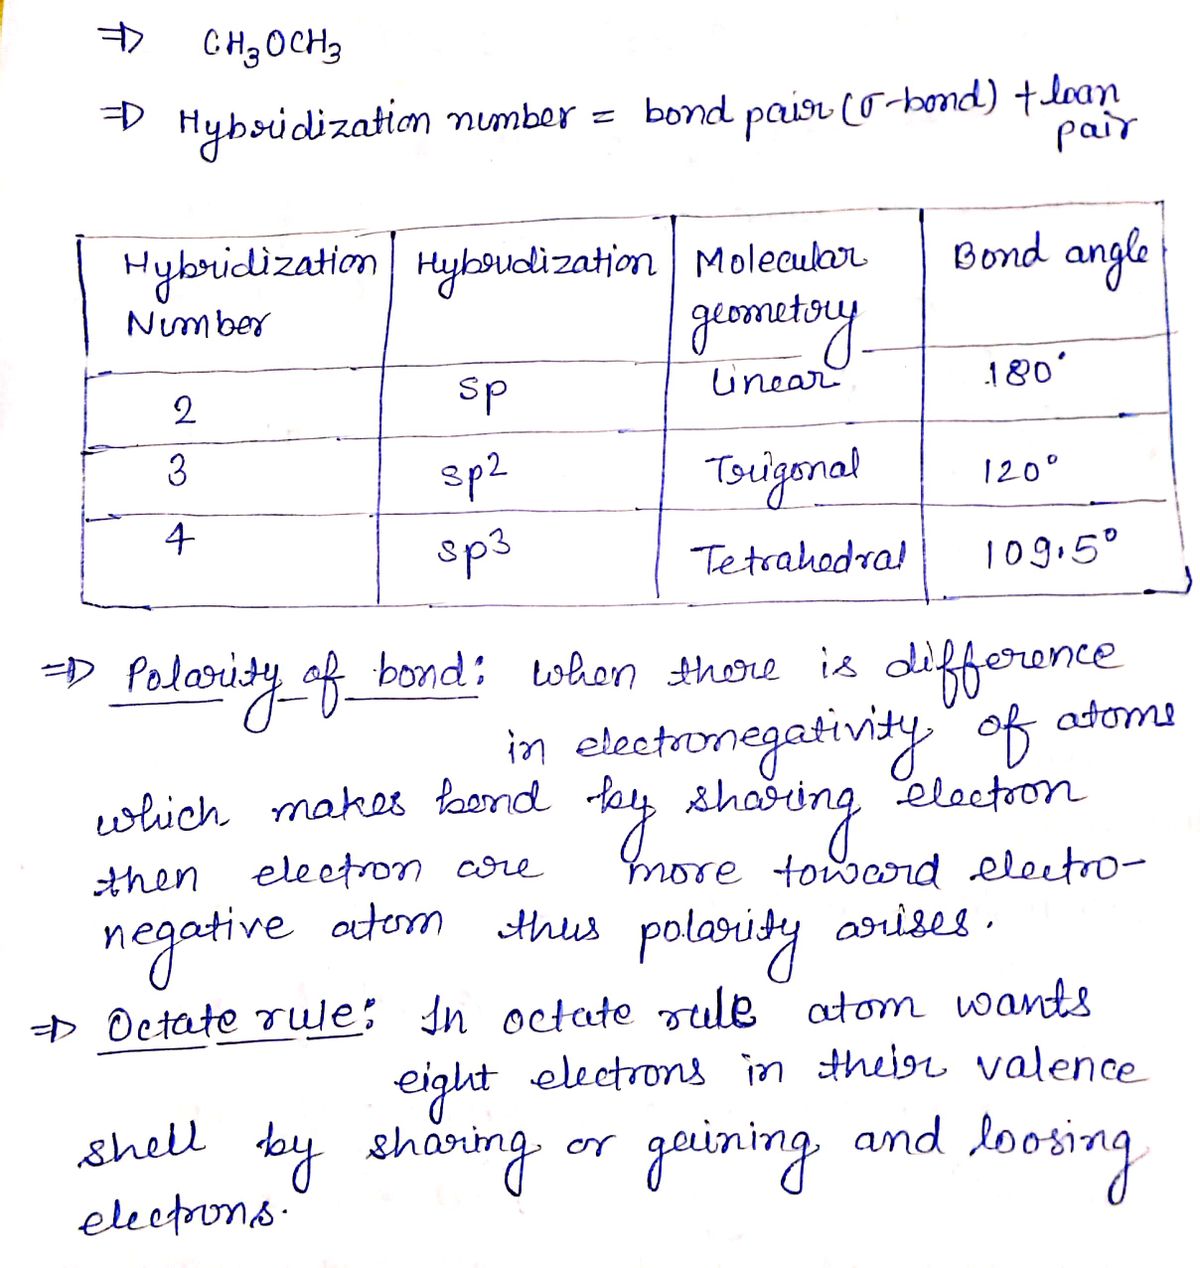 ⇒ CH3OCH3
⇒ Hybridization number = bond pair (σ-bond) + loan
pair
Hybridization | Hybridization | Molecular | Bond angle
Number | geometry
2 | sp | Linear | 180°
3 | sp2 | Trigonal | 120°
4 | sp3 | Tetrahedral | 109.5°
⇒ Polarity of bond: When there is difference
in electronegativity of atoms
which makes bond by sharing electron
then electron are more toward electro-
negative atom thus polarity arises.
⇒ Octate rule: In octate rule atom wants
eight electrons in their valence
shell by sharing or gaining and loosing
electrons.